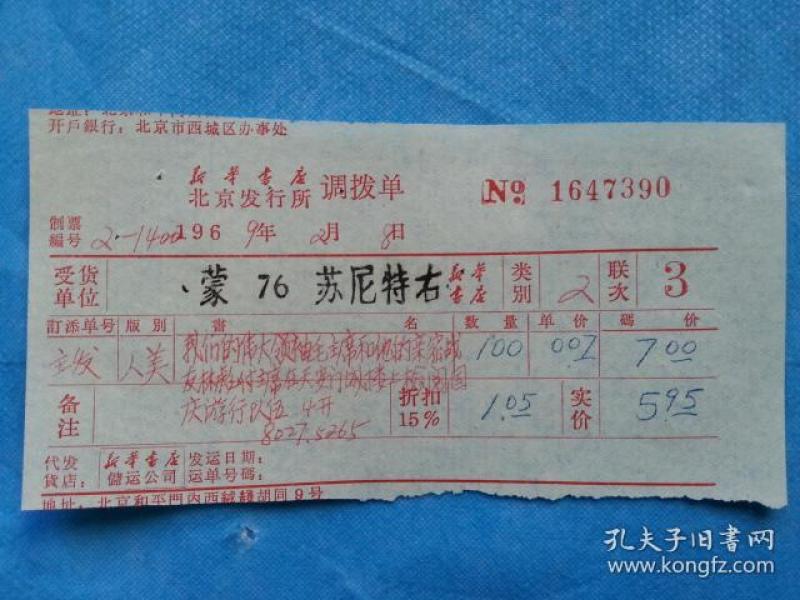 开戶銀行：北京市西城区办事处
新华书店
北京发行所 调拨单 No 1647390
制票
編号 2-1400 1969年2月8日
受货
单位 蒙 76 苏尼特右 新华
书店 类
别 2 联
次 3
訂添单号 版別 書名 数量 单价 碼价
主发 人美 我们的伟大领袖毛主席和他的亲密战 100 0.07 7.00
友林彪付主席在天安门城楼上检阅国
庆游行队伍 4开
8027.5265
备
注 折扣
15% 1.05 实
价 5.95
代发
貨店： 新华书店
儲运公司 发运日期：
运单号碼：
地址：北京和平門内西絨綫胡同9号
孔夫子旧书网
www.kongfz.com